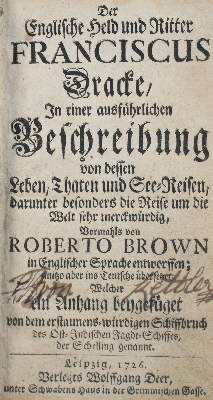 Der
Englische Held und Ritter
FRANCISCUS
Dracke,
In einer ausführlichen
Beschreibung
von dessen
Leben, Thaten und See-Reisen,
darunter besonders die Reise um die
Welt sehr merckwürdig,
Vormahls von
ROBERTO BROWN
in Englischer Sprache entworffen;
anitzo aber ins Teutsche übersetzet
Welcher
ein Anhang beygefüget
von dem erstaunens-würdigen Schiffbruch
des Ost-Indischen Jagdt-Schiffes,
der Schelling genannt.
Leipzig, 1726.
Verlegts Wolffgang Deer,
unter Schwabens Haus in der Grimmischen Gasse.